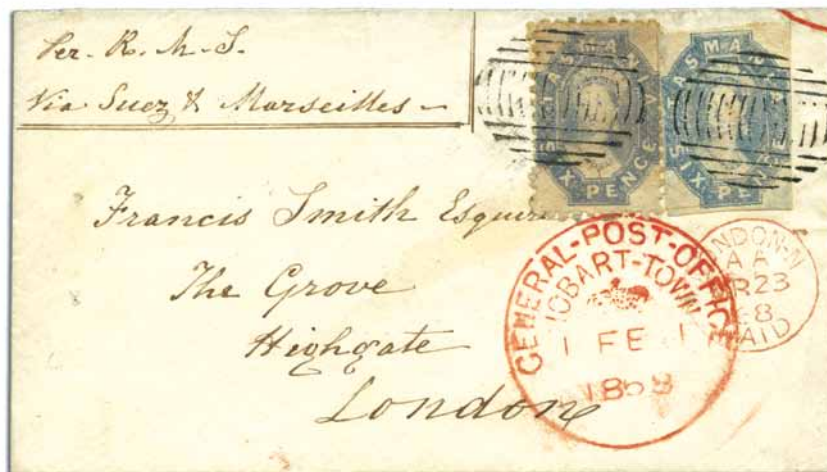 Per. R. M. S.
Via Suez & Marseilles
TASMANIA
SIX PENCE
TASMA
SIX PE
Francis Smith Esquire
The Grove
Highgate
London
GENERAL-POST-OFFICE
HOBART-TOWN
1 FE 1
NDON-N
AA
R23
8
AID